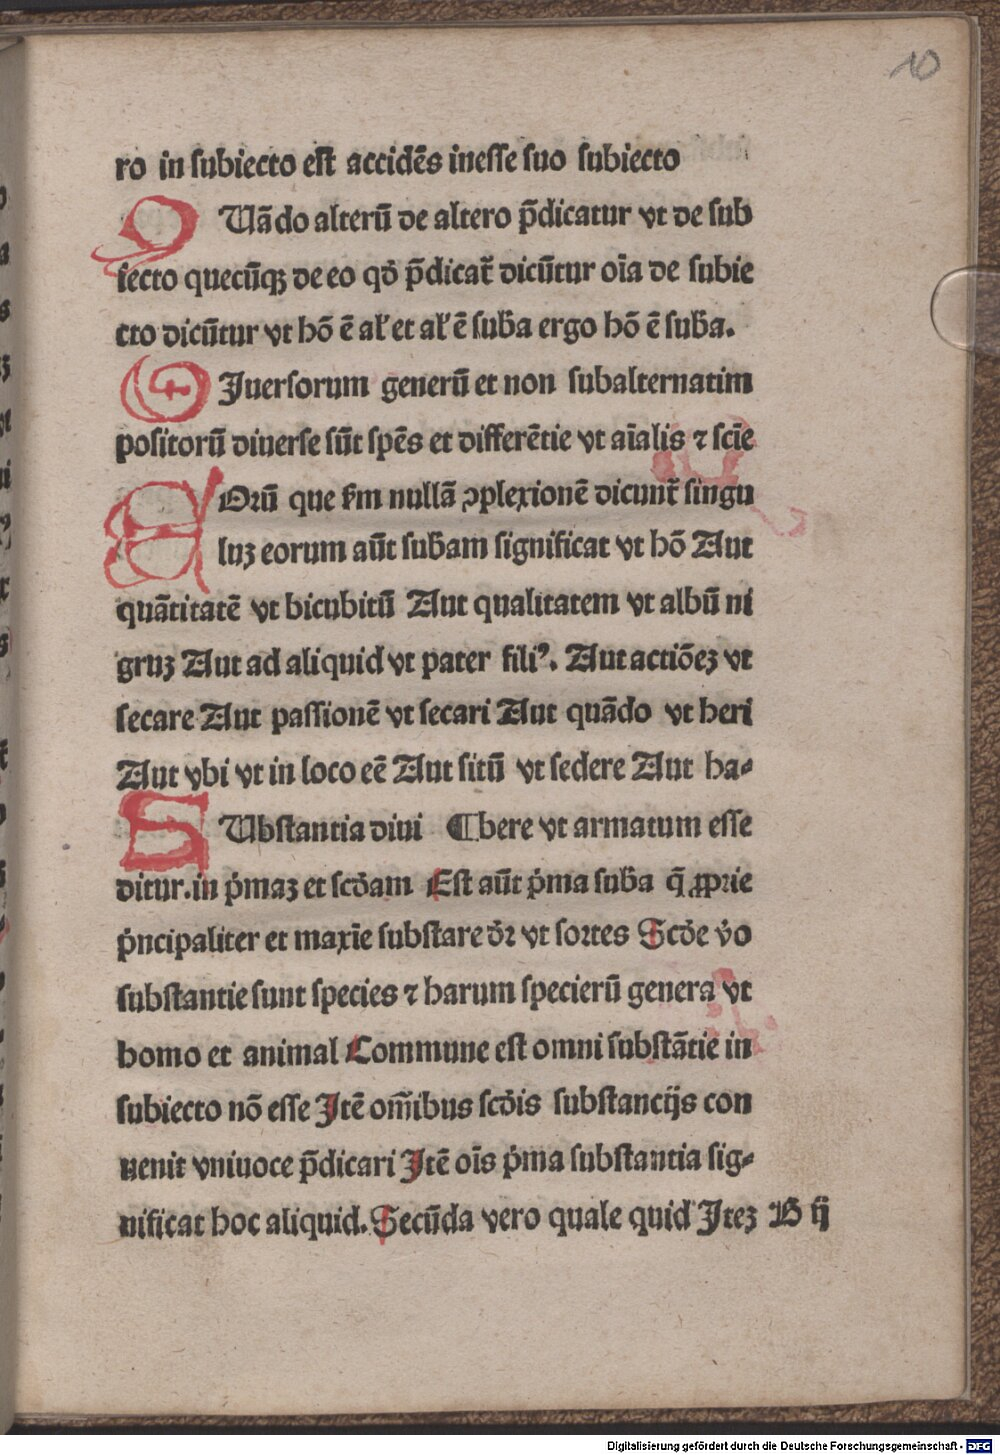 10
ro in subiecto est accidēs inesse suo subiecto
QUādo alterū de altero p̄dicatur vt de sub
iecto quecūqꝫ de eo qd̓ p̄dicat᷑ dicūtur oīa de subie
cto dicūtur vt hō ē al̓ et al̓ ē sub̄a ergo hō ē sub̄a.
DIuersorum generū et non subalternatim
positorū diuerse sūt spēs et differētie vt aīalis ⁊ scīe
EOrū que scd̓m nullā ꝯplexionē dicunt᷑ singu
luꝫ eorum aūt sub̄am significat vt hō Aut
quātitatē vt bicubitū Aut qualitatem vt albū ni
gruꝫ Aut ad aliquid vt pater filiꝰ. Aut actiōeꝫ vt
secare Aut passionē vt secari Aut quādo vt heri
Aut vbi vt in loco eē Aut sitū vt sedere Aut ha⸗
SUbstantia diui ¶bere vt armatum esse
ditur.in p̓maꝫ et scd̓am Est aūt p̓ma sub̄a q̄ ꝓprie
p̓ncipaliter et maxīe substare d̓ꝛ vt sortes Scd̓e v̓o
substantie sunt species ⁊ harum specierū genera vt
homo et animal Commune est omni substātie in
subiecto nō esse Itē om̄ibus scd̓is substancijs con
uenit vniuoce p̄dicari Itē oīs p̓ma substantia sig⸗
nificat hoc aliquid. Secūda vero quale quid Iteꝫ B ij
Digitalisierung gefördert durch die Deutsche Forschungsgemeinschaft - DFG